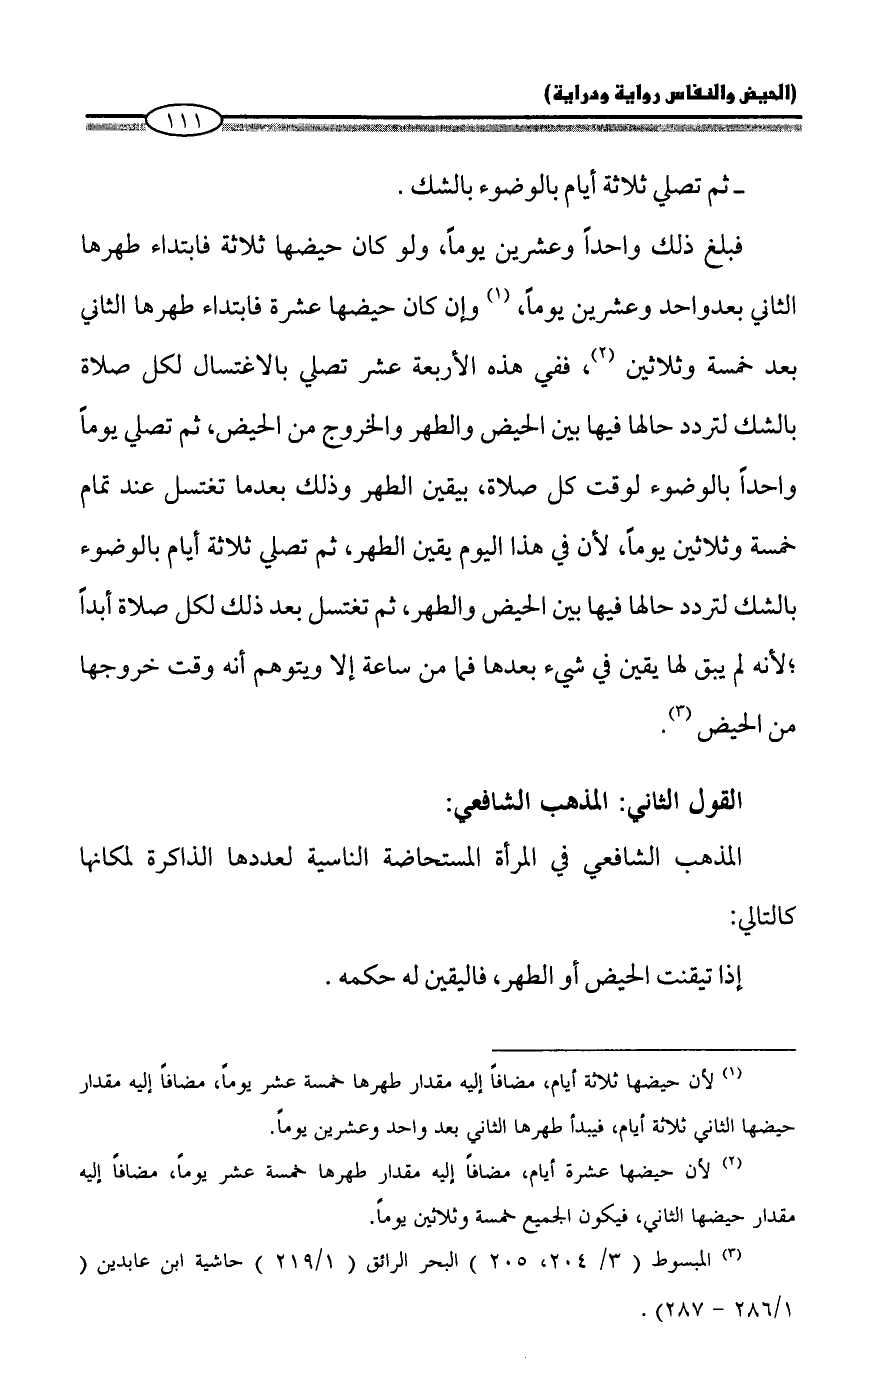 (الحيض والنفاس رواية ودراية)
١١١
ـ ثم تصلي ثلاثة أيام بالوضوء بالشك .
فبلغ ذلك واحداً وعشرين يوماً، ولو كان حيضها ثلاثة فابتداء طهرها
الثاني بعدواحد وعشرين يوماً، (١) وإن كان حيضها عشرة فابتداء طهرها الثاني
بعد خمسة وثلاثين (٢)، ففي هذه الأربعة عشر تصلي بالاغتسال لكل صلاة
بالشك لتردد حالها فيها بين الحيض والطهر والخروج من الحيض، ثم تصلي يوماً
واحداً بالوضوء لوقت كل صلاة، بيقين الطهر وذلك بعدما تغتسل عند تمام
خمسة وثلاثين يوماً، لأن في هذا اليوم يقين الطهر، ثم تصلي ثلاثة أيام بالوضوء
بالشك لتردد حالها فيها بين الحيض والطهر، ثم تغتسل بعد ذلك لكل صلاة أبداً
؛لأنه لم يبق لها يقين في شيء بعدها فما من ساعة إلا ويتوهم أنه وقت خروجها
من الحيض (٣).
القول الثاني: المذهب الشافعي:
المذهب الشافعي في المرأة المستحاضة الناسية لعددها الذاكرة لمكانها
كالتالي:
إذا تيقنت الحيض أو الطهر، فاليقين له حكمه .
(١) لأن حيضها ثلاثة أيام، مضافاً إليه مقدار طهرها خمسة عشر يوماً، مضافاً إليه مقدار
حيضها الثاني ثلاثة أيام، فيبدأ طهرها الثاني بعد واحد وعشرين يوماً.
(٢) لأن حيضها عشرة أيام، مضافاً إليه مقدار طهرها خمسة عشر يوماً، مضافاً إليه
مقدار حيضها الثاني، فيكون الجميع خمسة وثلاثين يوماً.
(٣) المبسوط ( ٣/ ٢٠٤، ٢٠٥ ) البحر الرائق ( ٢١٩/١ ) حاشية ابن عابدين (
٢٨٦/١ – ٢٨٧) .